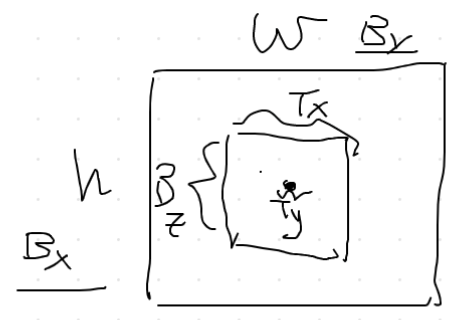 W By
Tx
h B z
Ty
Bx